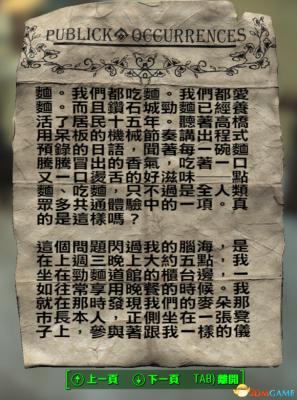 PUBLICK OCCURRENCES
麵。我們都吃麵。我們都愛
麵。而且鑽石城勁麵已經養
活了居民十五年。聽著高橋
用呆板的機械節奏講出程式
預錄的日語，聞著每一碗麵
騰騰冒出的香氣，吃著一口
又一口燙舌的好滋味——點
麵、吃麵，只不過是全人類
眾多共通體驗中的一項。真
的是這樣嗎？
這個問題閃過我的腦海，是
在上週三晚上大約五點，我
坐在勁麵道館的櫃台邊，一
如往常享用晚餐的時候。我
就在那時發現我們的麥朵那
市長本人，正側坐在一張凳
子上，參與著跟我一樣的儀
↑)上一頁 ↓)下一頁 TAB)離開
3DMGAME